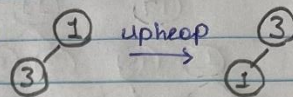 1 upheap 3
3 1